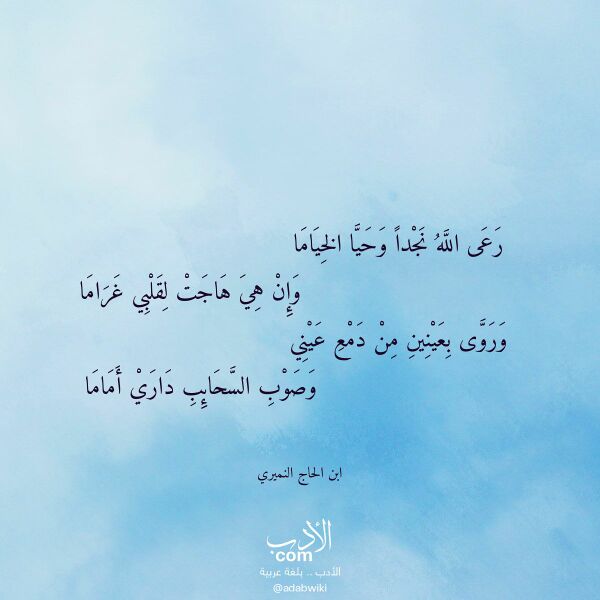 رَعَى اللَّهُ نَجْداً وَحَيَّا الخِيَامَا
وَإِنْ هِيَ هَاجَتْ لِقَلْبِي غَرَامَا
وَرَوَّى بِعَيْنِينِ مِنْ دَمْعِ عَيْنِي
وَصَوْبِ السَّحَايِبِ دَارَيْ أَمَامَا
ابن الحاج النميري
الأدب
com
الأدب .. بلغة عربية
@adabwiki